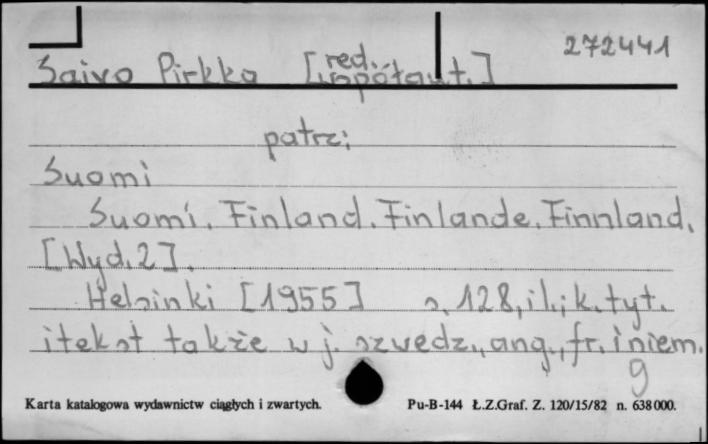 272441
Saivo Pirkko [red. współaut.]
patrz:
Suomi
Suomi. Finland. Finlande. Finnland.
[Wyd. 2].
Helsinki [1955] s. 128, il.; k. tyt.
i tekst także w j. szwedz., ang., fr. i niem.
9
Karta katalogowa wydawnictw ciągłych i zwartych. Pu-B-144 Ł.Z.Graf. Z. 120/15/82 n. 638000.